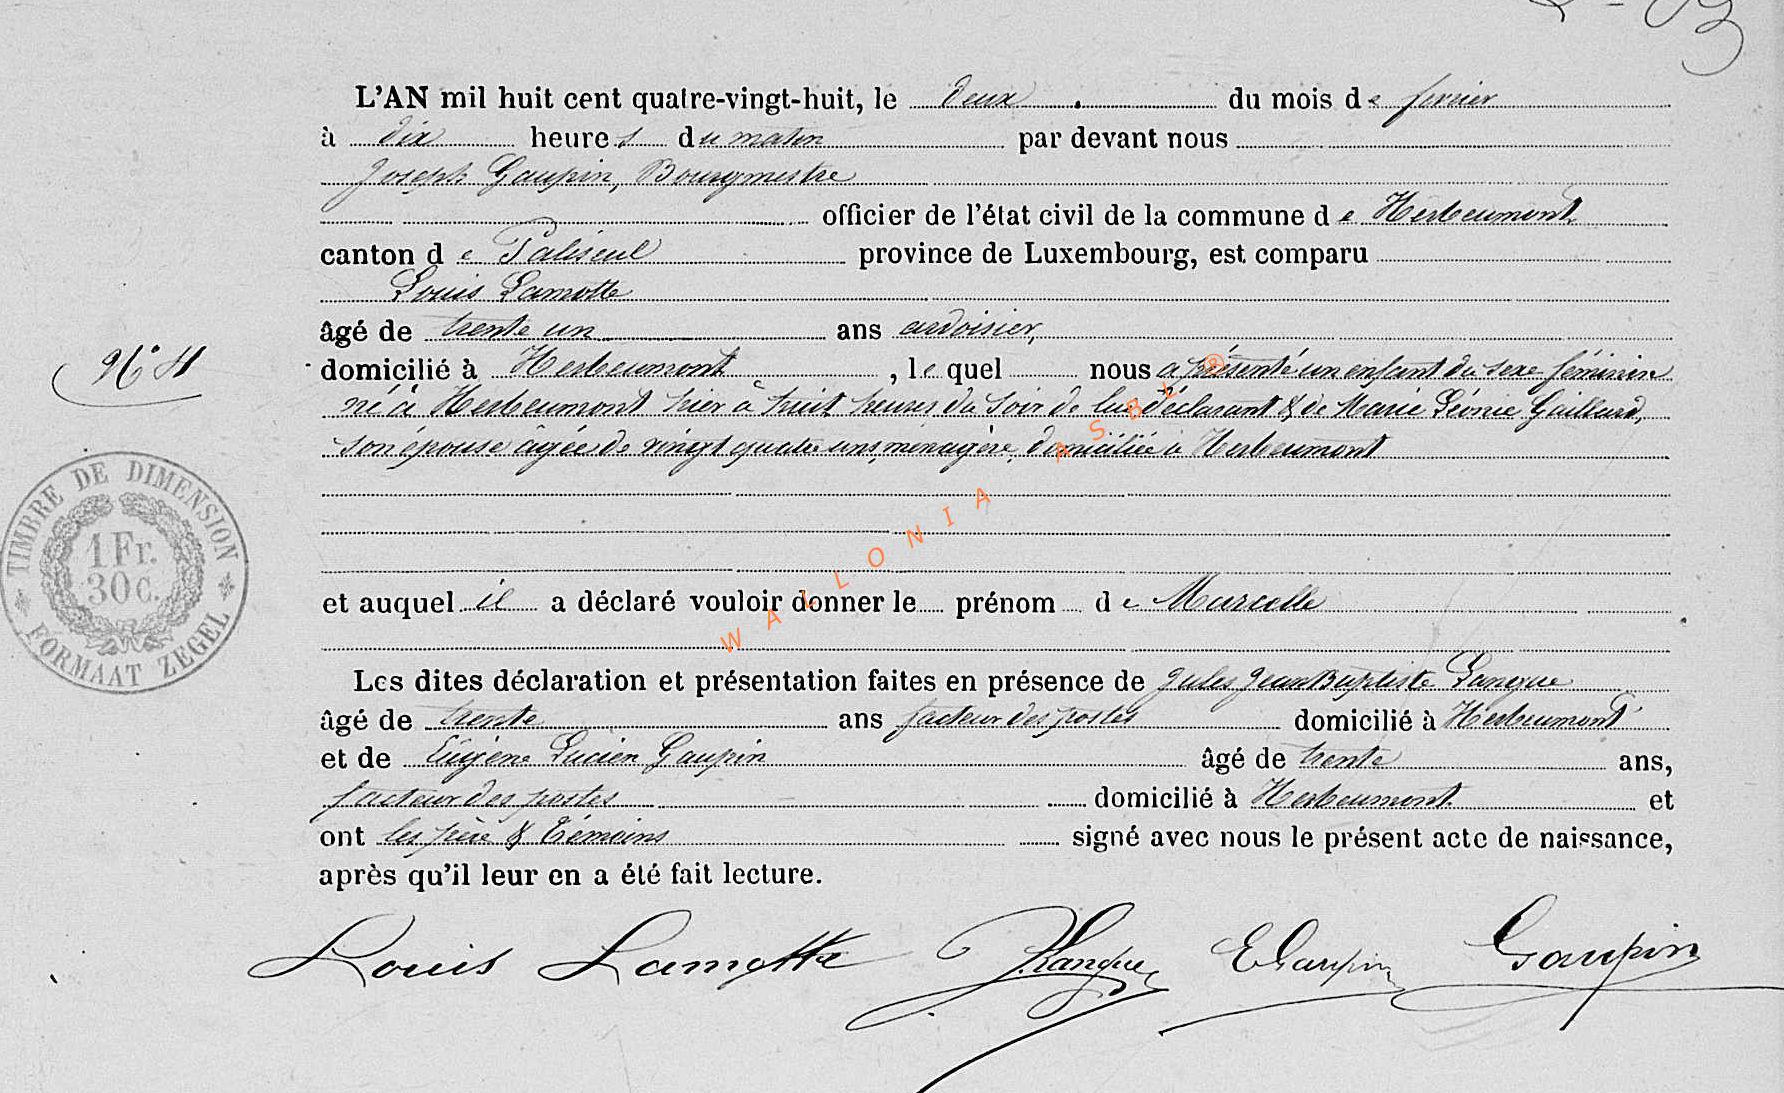 L'AN mil huit cent quatre-vingt-huit, le deux du mois de fevrier
à dix heures du matin par devant nous
Joseph Gaupin, Bourgmestre
officier de l'état civil de la commune de Herbeumont
canton de Paliseul province de Luxembourg, est comparu
Louis Lamotte
âgé de trente un ans ardoisier,
N° 4
domicilié à Herbeumont, lequel nous a présenté un enfant du sexe féminin
né à Herbeumont hier à huit heures du soir de lui déclarant & de Marie Léonie Gaillard,
son épouse âgée de vingt quatre ans, ménagère, domiciliée à Herbeumont
TIMBRE DE DIMENSION
1 Fr.
30 c.
FORMAAT ZEGEL
WALLONIA ASBL ®
et auquel il a déclaré vouloir donner le prénom de Marcelle
Les dites déclaration et présentation faites en présence de Jules Jean Baptiste Langue
âgé de trente ans facteur des postes domicilié à Herbeumont
et de Eugène Lucien Gaupin âgé de trente ans,
facteur des postes domicilié à Herbeumont et
ont les père & témoins signé avec nous le présent acte de naissance,
après qu'il leur en a été fait lecture.
Louis Lamotte J. Langue E Gaupin Gaupin